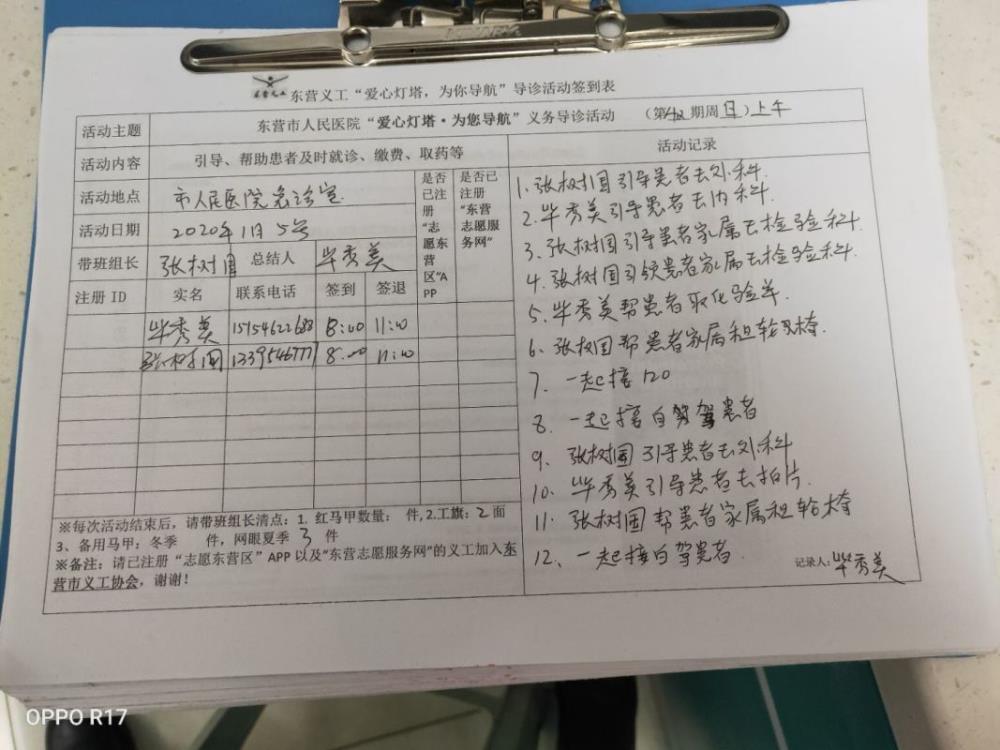 东营义工“爱心灯塔，为你导航”导诊活动签到表
活动主题 东营市人民医院“爱心灯塔·为您导航”义务导诊活动 （第 期周日）上午
活动内容 引导、帮助患者及时就诊、缴费、取药等
活动地点 市人民医院急诊室
活动日期 2020年1月5号
带班组长 张树国 总结人 毕秀美
是否已注册“志愿东营区”APP
是否已注册“东营志愿服务网”
注册ID 实名 联系电话 签到 签退
毕秀美 8:00 11:00
张树国 8:00 11:00
※每次活动结束后，请带班组长清点：1. 红马甲数量： 件,2.工旗：2面
3、备用马甲：冬季 件，网眼夏季 3 件
※备注：请已注册“志愿东营区”APP以及“东营志愿服务网”的义工加入东
营市义工协会，谢谢！
活动记录
1.张树国引导患者去外科.
2.毕秀美引导患者去内科.
3.张树国引导患者家属去检验科.
4.张树国引领患者家属去检验科.
5.毕秀美帮患者取化验单.
6.张树国帮患者家属租轮椅.
7.一起接120
8.一起接自驾患者
9.张树国引导患者去外科
10.毕秀美引导患者去拍片.
11.张树国帮患者家属租轮椅
12.一起接自驾患者.
记录人：毕秀美
OPPO R17